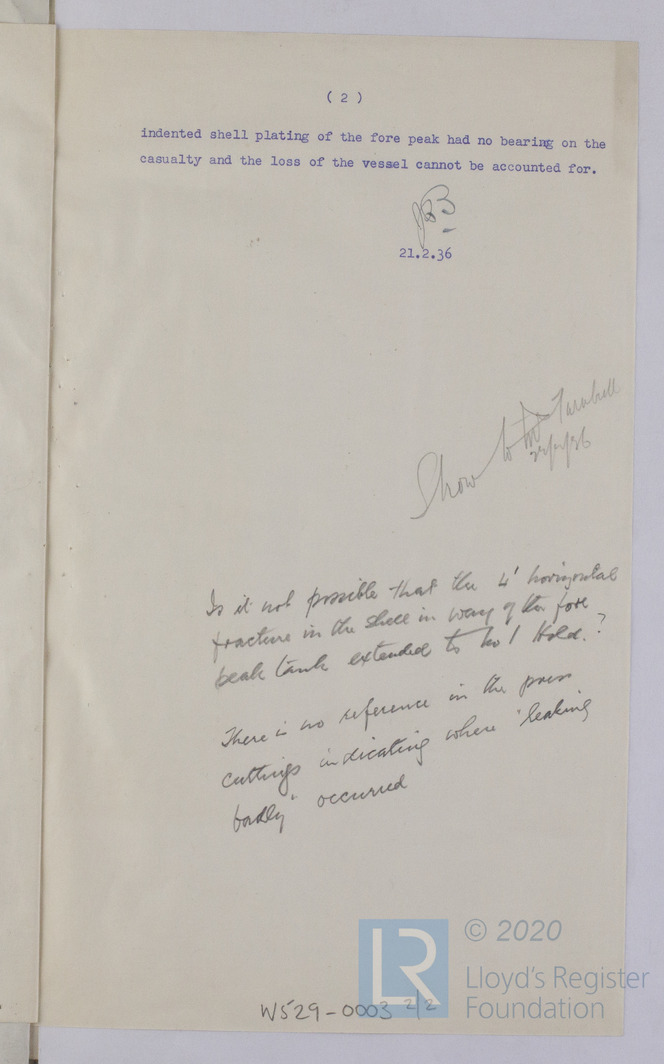 ( 2 )
indented shell plating of the fore peak had no bearing on the
casualty and the loss of the vessel cannot be accounted for.
21.2.36
Show to Mr Turnbull
Is it not possible that the 4' horizontal
fracture in the shell in way of the fore
peak tank extended to No 1 Hold.?
There is no reference in the press
cuttings indicating where "leaking
badly" occurred
© 2020
LR
Lloyd's Register
Foundation
W529-0003 2/2